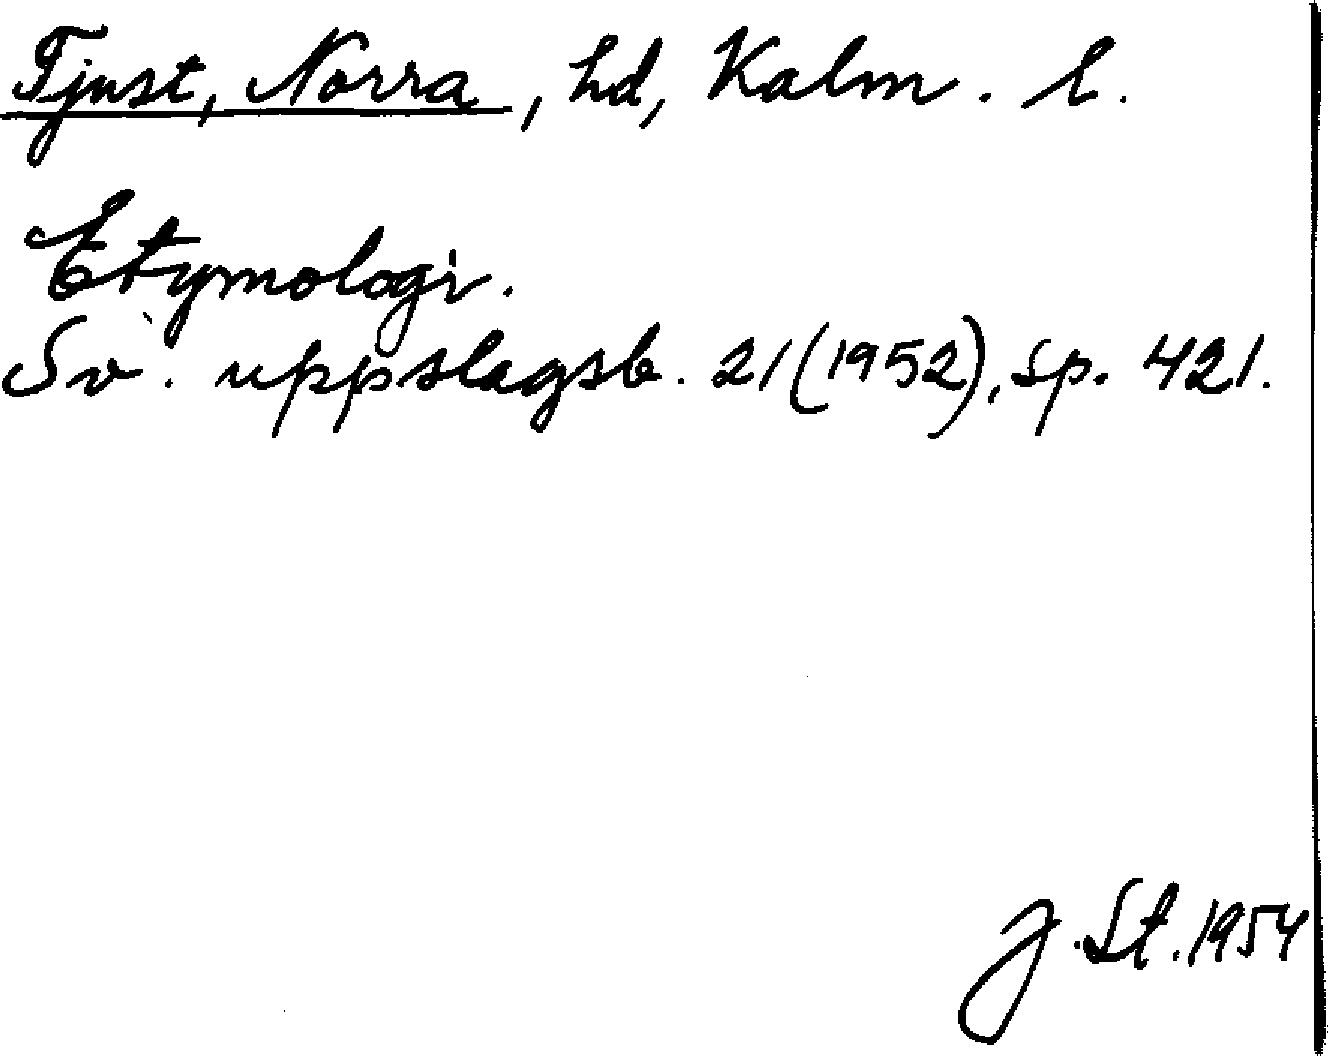 Tjust, Norra, hd, Kalm. l.
Etymologi.
Sv. uppslagsb. 21 (1952), sp. 421.
J. St. 1954